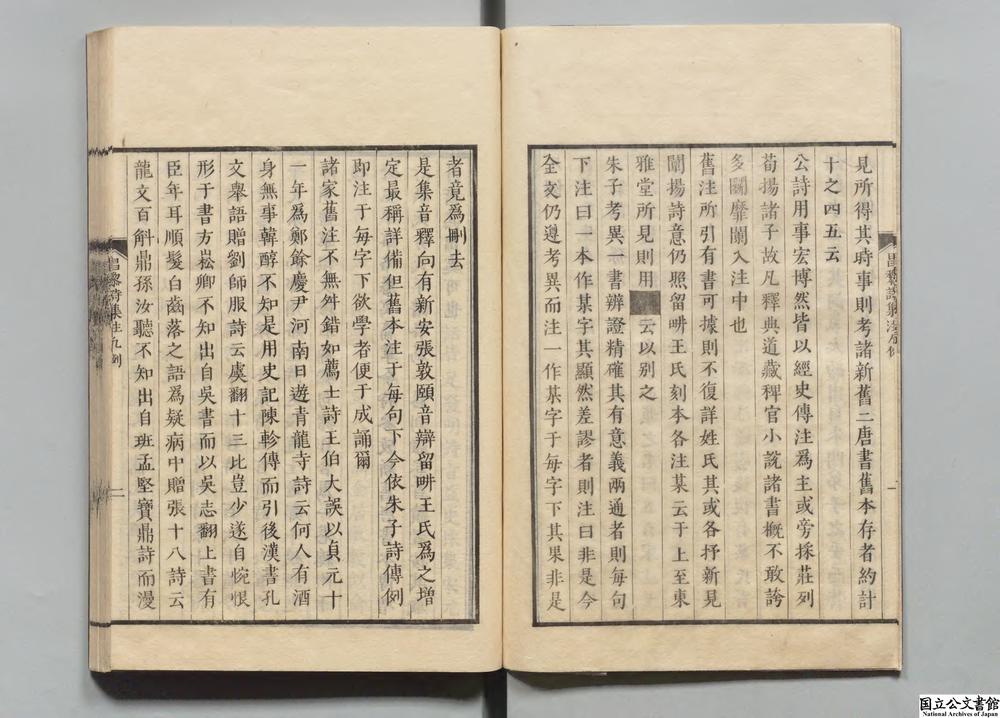 見所得其時事則考諸新舊二唐書舊本存者約計
十之四五云
公詩用事宏博然皆以經史傳注爲主或旁採莊列
荀揚諸子故凡釋典道藏稗官小說諸書概不敢誇
多鬭靡闌入注中也
舊注所引有書可據則不復詳姓氏其或各抒新見
闡揚詩意仍照留畊王氏刻本各注某云于上至東
雅堂所見則用云以别之
朱子考異一書辨證精確其有意義兩通者則每句
下注曰一本作某字其顯然差謬者則注曰非是今
全文仍遵考異而注一作某字于每字下其果非是
昌黎詩集注凡例
一
者竟爲刪去
是集音釋向有新安張敦頤音辯留畊王氏爲之增
定最稱詳備但舊本注于每句下今依朱子詩傳例
即注于每字下欲學者便于成誦爾
諸家舊注不無舛錯如薦士詩王伯大誤以貞元十
一年爲鄭餘慶尹河南日遊青龍寺詩云何人有酒
身無事韓醇不知是用史記陳軫傳而引後漢書孔
文舉語贈劉師服詩云虞翻十三比豈少遂自惋恨
形于書方崧卿不知出自吳書而以吳志翻上書有
臣年耳順髮白齒落之語爲疑病中贈張十八詩云
龍文百斛鼎孫汝聽不知出自班孟堅寶鼎詩而漫
昌黎詩集注凡例
二
国立公文書館
National Archives of Japan